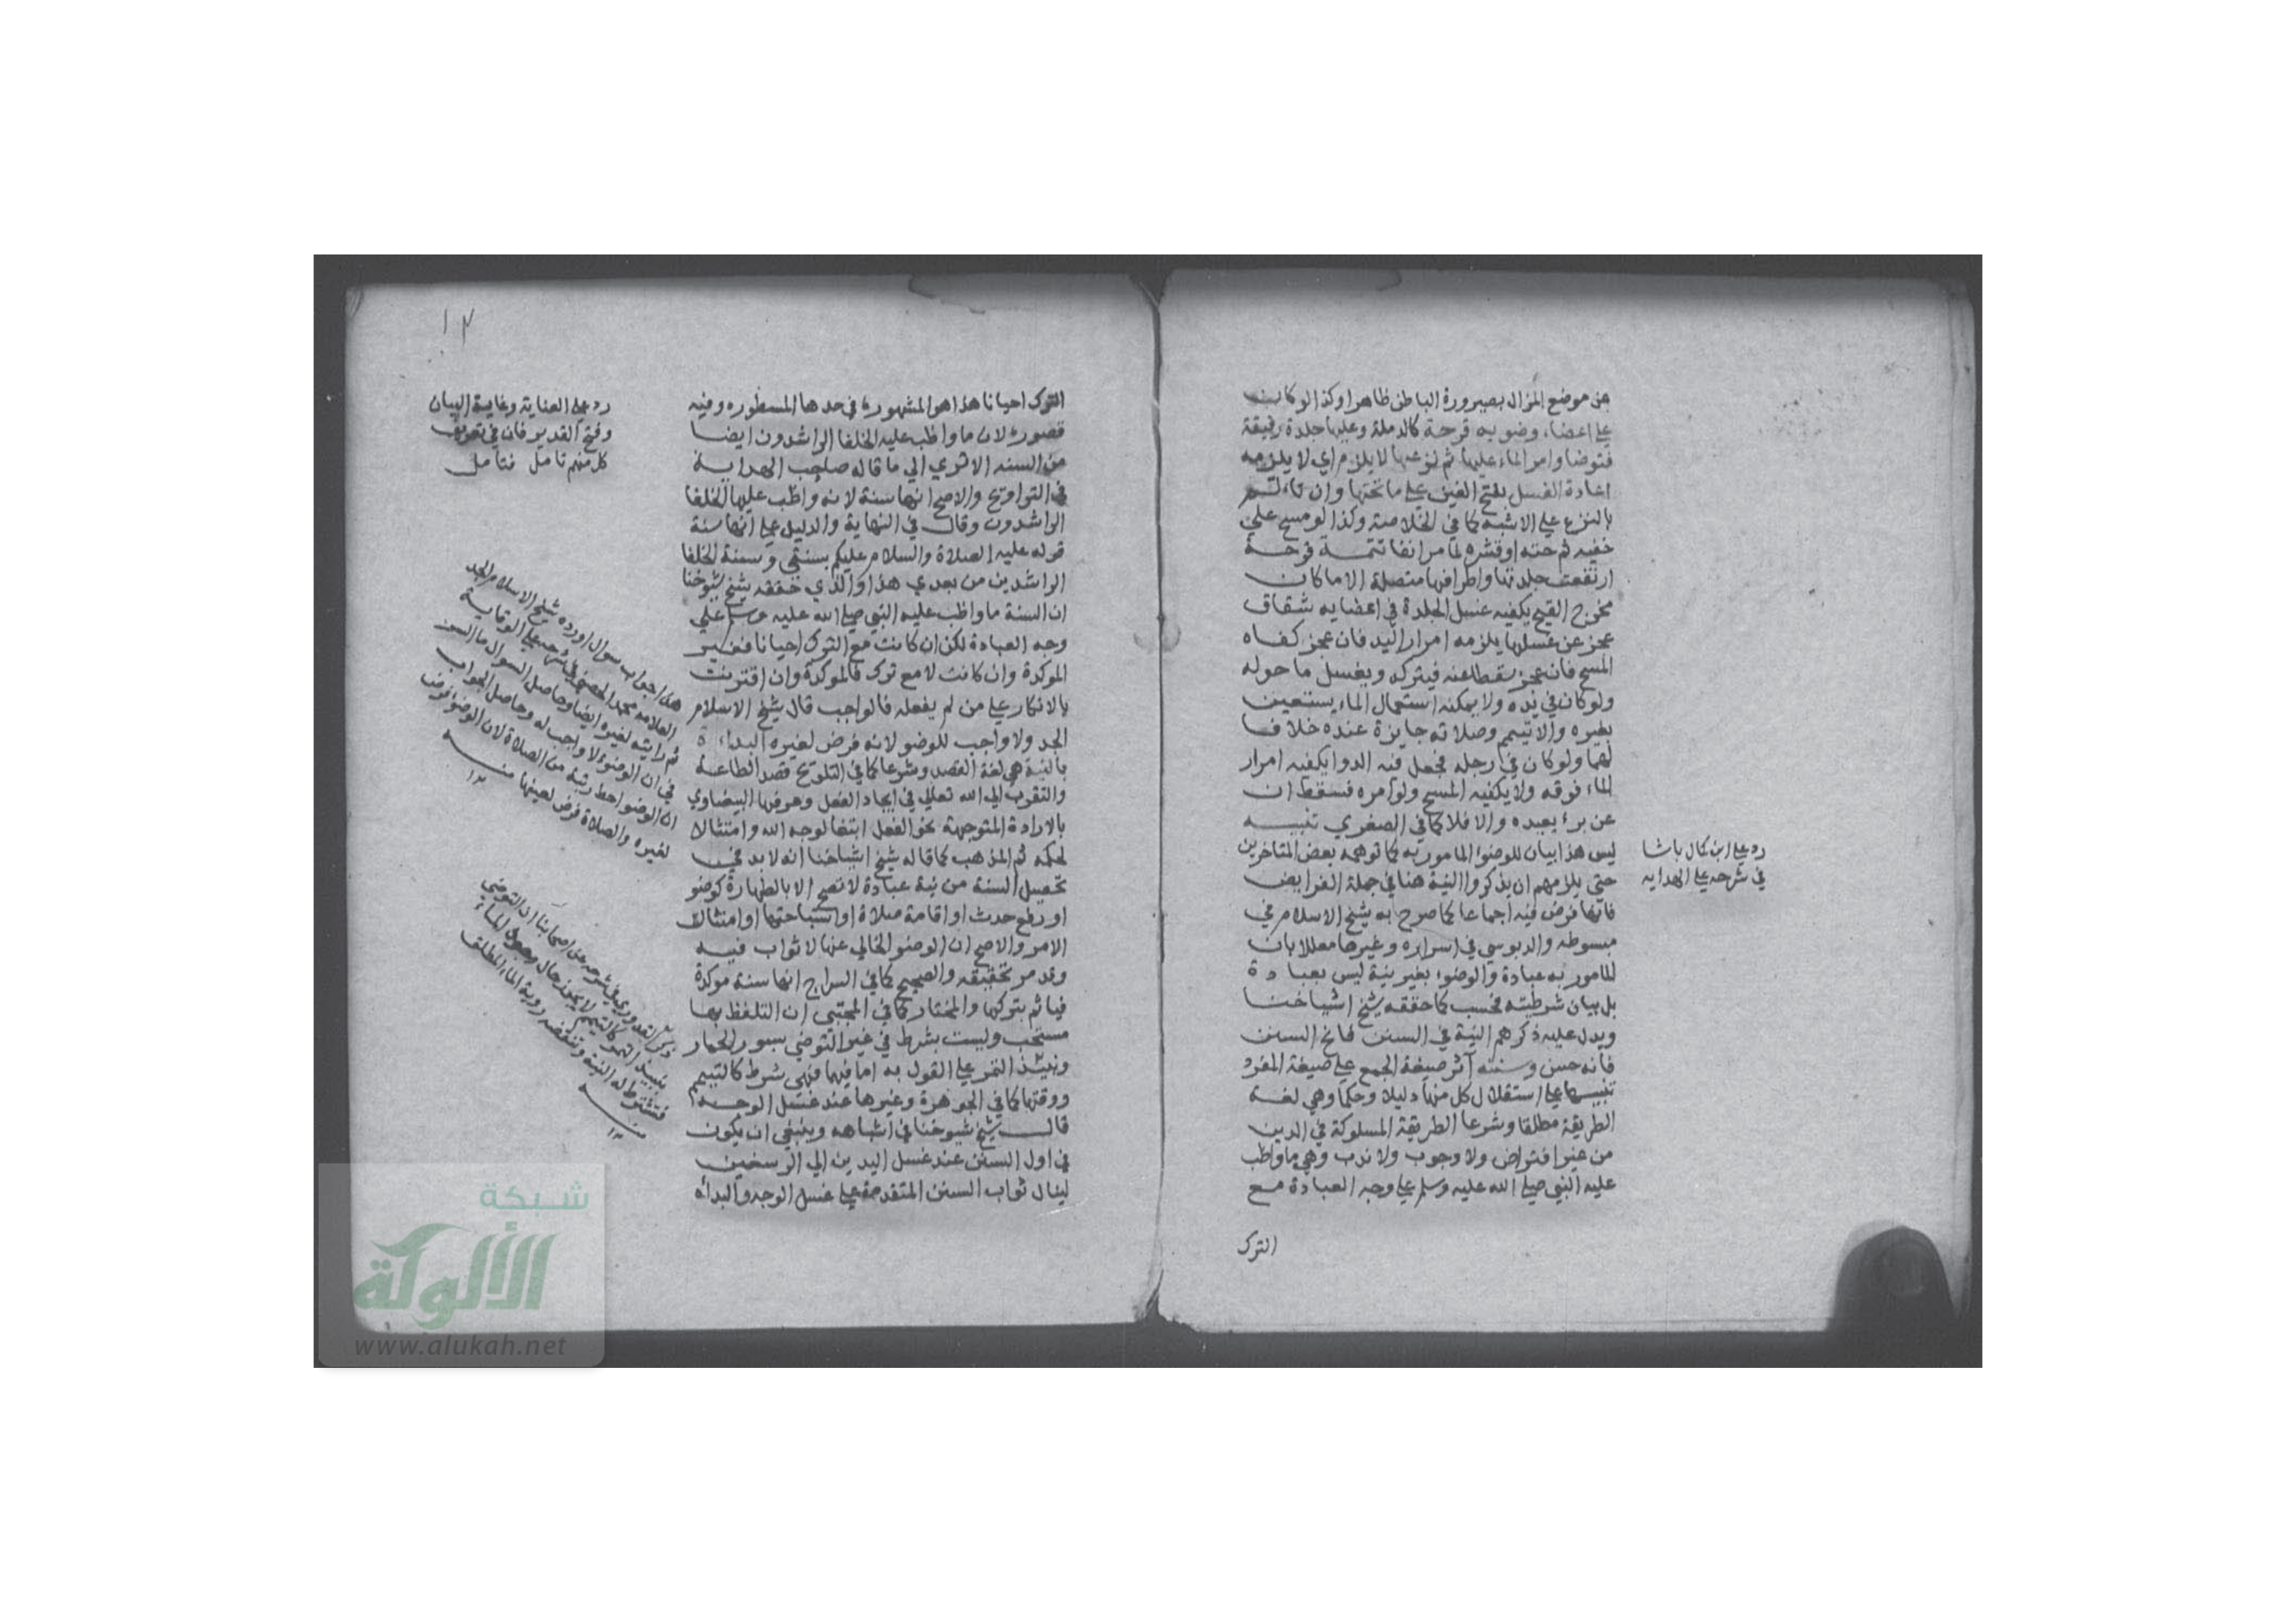 عن موضع المزال بصيرورة الباطن ظاهرا وكذا لو كانت
علي اعضاء وضويه قرحة كالدملة وعليها جلدة رقيقة
فتوضا وامر الماء عليها ثم نزعها لا يلزم اي لا يلزمه
اعادة الغسل بفتح الغين علي ما تحتها وان تالم
بالنزع علي الاشبه كما في الخلاصة وكذا لو مسح علي
خفيه ثم حته او قشره لما مر انفا تتمة قرحة
ارتفعت جلدتها واطرافها متصلة الا ما كان
مخرج القيح يكفيه غسل الجلدة في اعضايه شقاق
عجز عن غسلها يلزمه امرار اليد فان عجز كفاه
المسح فان عجز سقط عنه فيتركه ويغسل ما حوله
ولو كان في يده ولا يمكنه استعمال الماء يستعين
بغيره والا تيمم وصلاته جايزة عنده خلافا
لهما ولو كان في رجله فجعل فيه الدوا يكفيه امرار
الماء فوقه ولا يكفيه المسح ولو امره فسقط ان
عن برء يعيده والا فلا كما في الصغري تنبيه
ليس هذا بيان للوضوء المامور به كما توهمه بعض المتاخرين
حتي يلزمهم ان يذكروا النية هنا في جملة الفرايض
فانها فرض فيه اجماعا كما صرح به شيخ الاسلام في
مبسوطه والدبوسي في اسراره وغيرهما معللا بان
المامور به عبادة والوضوء بغير نية ليس بعبادة
بل بيان شرطيته فحسب كما حققه شيخ اشياخنا
ويدل عليه ذكرهم النية في السنن فافتح السنن
فانه حسن وسننه آثر صيغة الجمع علي صيغة المفرد
تنبيها علي استقلال كل منها دليلا وحكما وهي لغة
الطريقة مطلقا وشرعا الطريقة المسلوكة في الدين
من غير افتراض ولا وجوب ولا ندب وهي ما واظب
عليه النبي صلي الله عليه وسلم علي وجه العبادة مع
الترك
رد علي ابن كمال باشا
في شرحه علي الهدايه
١٣
الترك احيانا هذا هو المشهور في حدها المسطور وفيه
قصور لان ما واظب عليه الخلفا الراشدون ايضا
من السنه الا تري الي ما قاله صاحب الهداية
في التراويح والاصح انها سنة لانه واظب عليها الخلفا
الراشدون وقال في النهاية والدليل علي انها سنة
قوله عليه الصلاة والسلام عليكم بسنتي وسنة الخلفا
الراشدين من بعدي هذا والذي حققه شيخ شيوخنا
ان السنة ما واظب عليه النبي صلي الله عليه وسلم علي
وجه العبادة لكن ان كانت مع الترك احيانا فغير
الموكدة وان كانت لا مع ترك فالموكدة وان اقترنت
بالانكار علي من لم يفعله فالواجب قال شيخ الاسلام
الجد ولا واجب للوضو لانه فرض لغيره البداءة
بالنية هي لغة القصد وشرعا كما في التلويح قصد الطاعة
والتقرب الي الله تعالي في ايجاد الفعل وعرفها البيضاوي
بالارادة المتوجهة نحو الفعل ابتغا لوجه الله وامتثالا
لحكمه ثم المذهب كما قاله شيخ اشياخنا انه لا بد في
تحصيل السنة من نية عبادة لا تصح الا بالطهارة كوضو
او رفع حدث او اقامة صلاة او استباحتها او امتثال
الامر والاصح ان الوضو الخالي عنها لا ثواب فيه
وقد مر تحقيقه والصحيح كما في السراج انها سنة موكدة
فياثم بتركها والمختار كما في المجتبي ان التلفظ بها
مستحب وليست بشرط في غير التوضي بسور الحمار
ونبيذ التمر علي القول به اما فيها فهي شرط كالتيمم
ووقتها كما في الجوهرة وغيرها عند غسل الوجه
قال شيخ شيوخنا في اشباهه وينبغي ان يكون
في اول السنن عند غسل اليدين الي الرسغين
لينال ثواب السنن المتقدمة علي غسل الوجه والبداه
رد علي العناية وغاية البيان
وفتح القدير فان في تعريف
كل منهم تامل فتامل
هذا جواب سوال اورده شيخ الاسلام الجد
العلامه محمد الحصني في شرحه علي الوقاية
ثم رايته لغيره ايضا وحاصل السوال ما السر
في ان الوضوء لا واجب له وحاصل الجواب
ان الوضو احط رتبة من الصلاة لان الوضوء فرض
لغيره والصلاة فرض لعينها منه
١٢
ذكر القدوري في شرحه عن اصحابنا ان التوضي
بنبيذ التمر كالتيمم لا يجوز حال وجود الماء
فتشترط له النية وتنقضه روية الماء المطلق
منه
١٢
شبكة
الألوكة
www.alukah.net